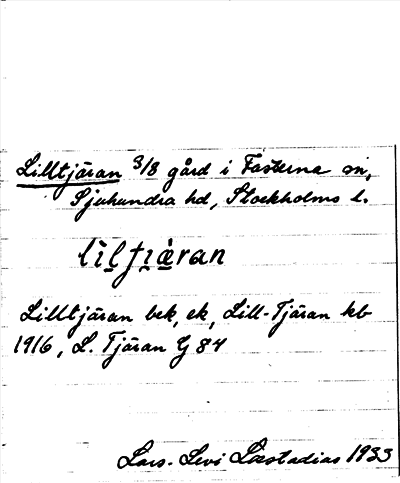 Lilltjäran 3/8 gård i Fasterna sn,
Sjuhundra hd, Stockholms l.
lìlʃiä̀ran
Lilltjäran bek, ek, Lill-Tjäran kb
1916, L. Tjäran G 84
Lars-Levi Læstadius 1933